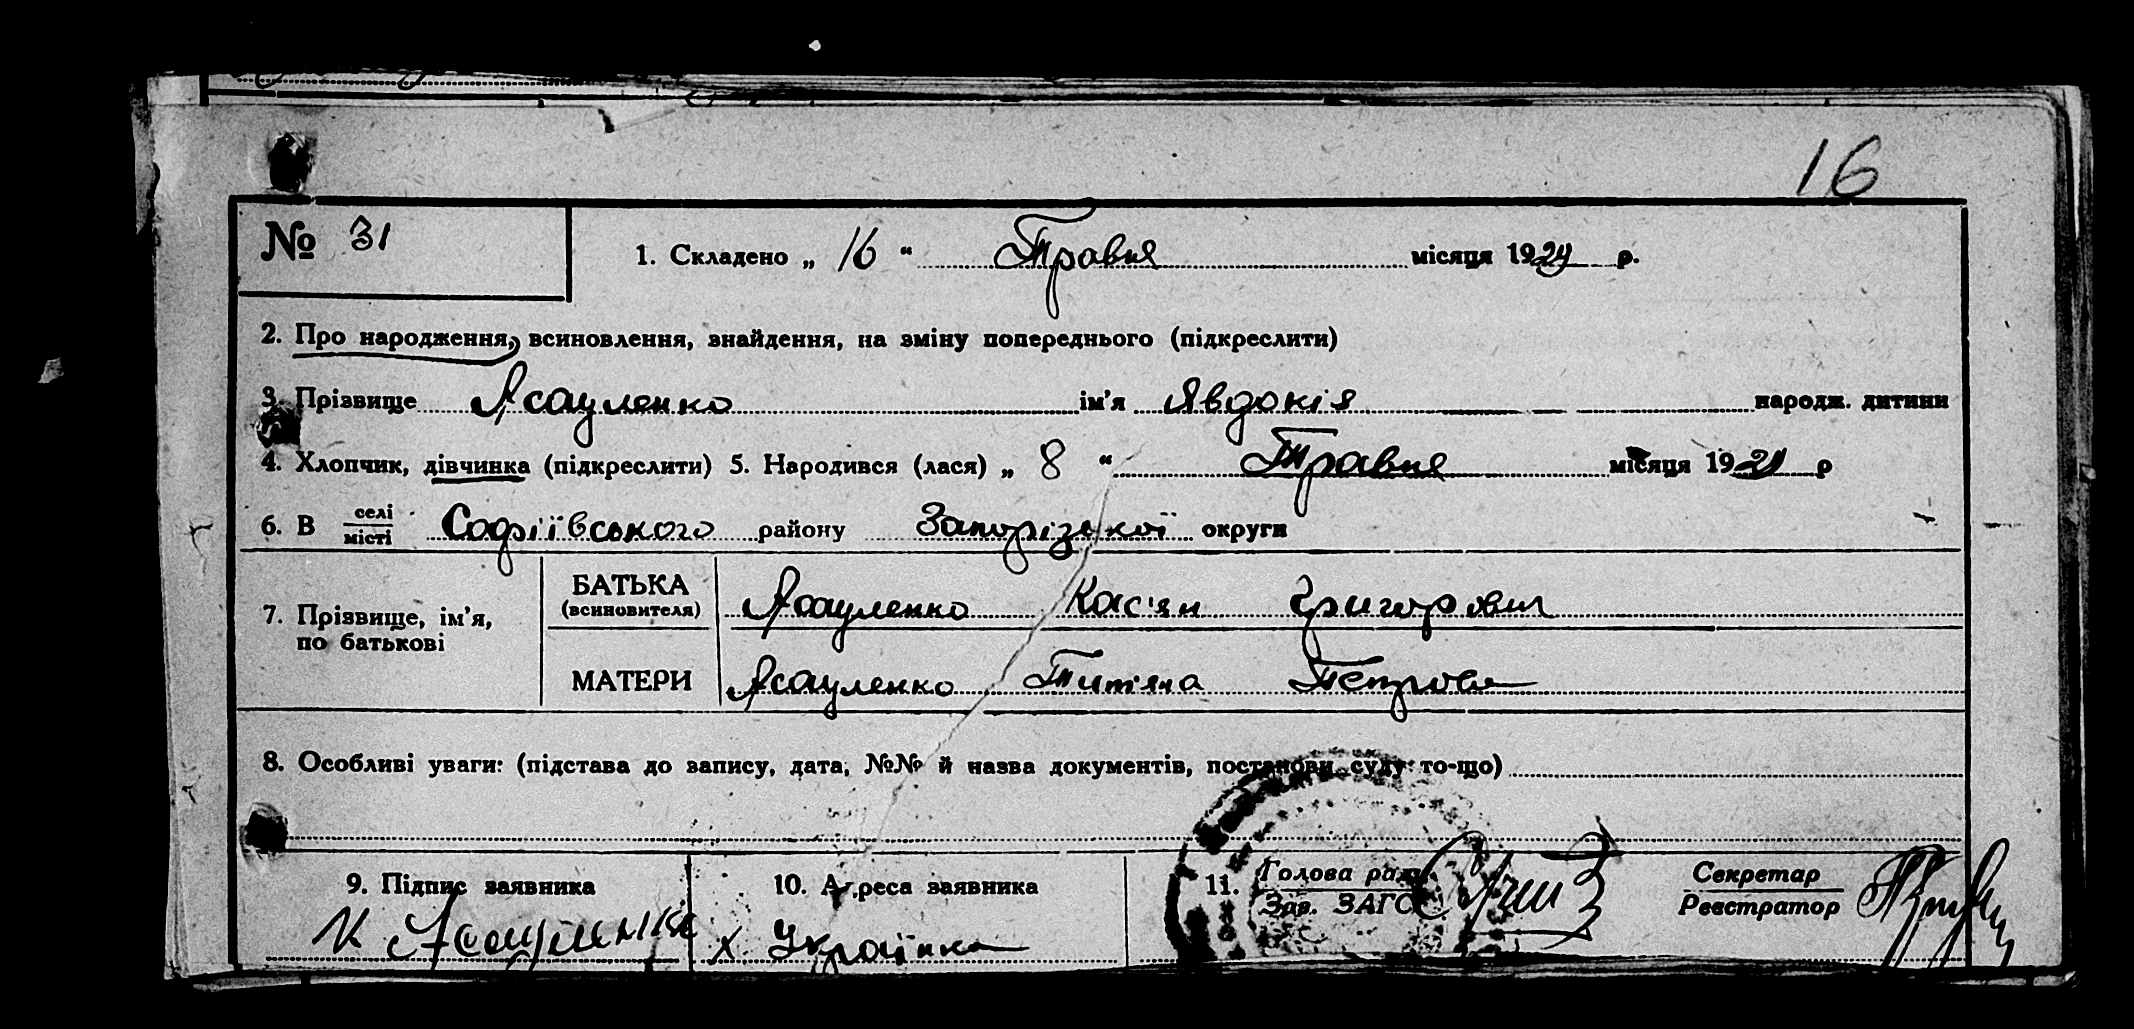 16
№ 31
1. Складено „ 16 “ Травня місяця 1924 р.
2. Про народження, всиновлення, знайдення, на зміну попереднього (підкреслити)
3. Прізвище Асауленко ім’я Явдокія народж. дитини
4. Хлопчик, дівчинка (підкреслити) 5. Народився (лася) „ 8 “ Травня місяця 19 р
6. В селі місті Софіївського району Запорізької округи
7. Прізвище, ім’я, по батькові
БАТЬКА (всиновителя) Асауленко Кас'ян Григорович
МАТЕРИ Асауленко Тит'яна Петровн
8. Особливі уваги: (підстава до запису, дата, №№ й назва документів, постанови суду то-що)
9. Підпис заявника
10. Адреса заявника
11. Голова ради Зав. ЗАГС
Секретар Реєстратор
К Асауленко
х. Українка